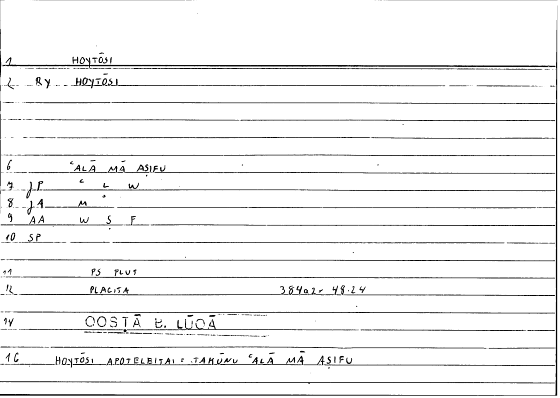 1 HOYTŌSI
2 RY HOYTŌSI
6 ʿALĀ MĀ AṢIFU
7 JP ʿ L W
8 JA M ʾ
9 AA W Ṣ F
10 SP
11 PS PLUT
12 PLACITA 384a2- 48.24
14 QOSṬĀ B. LŪQĀ
16 HOYTŌSI APOTELEITAI : TAKŪNU ʿALĀ MĀ AṢIFU